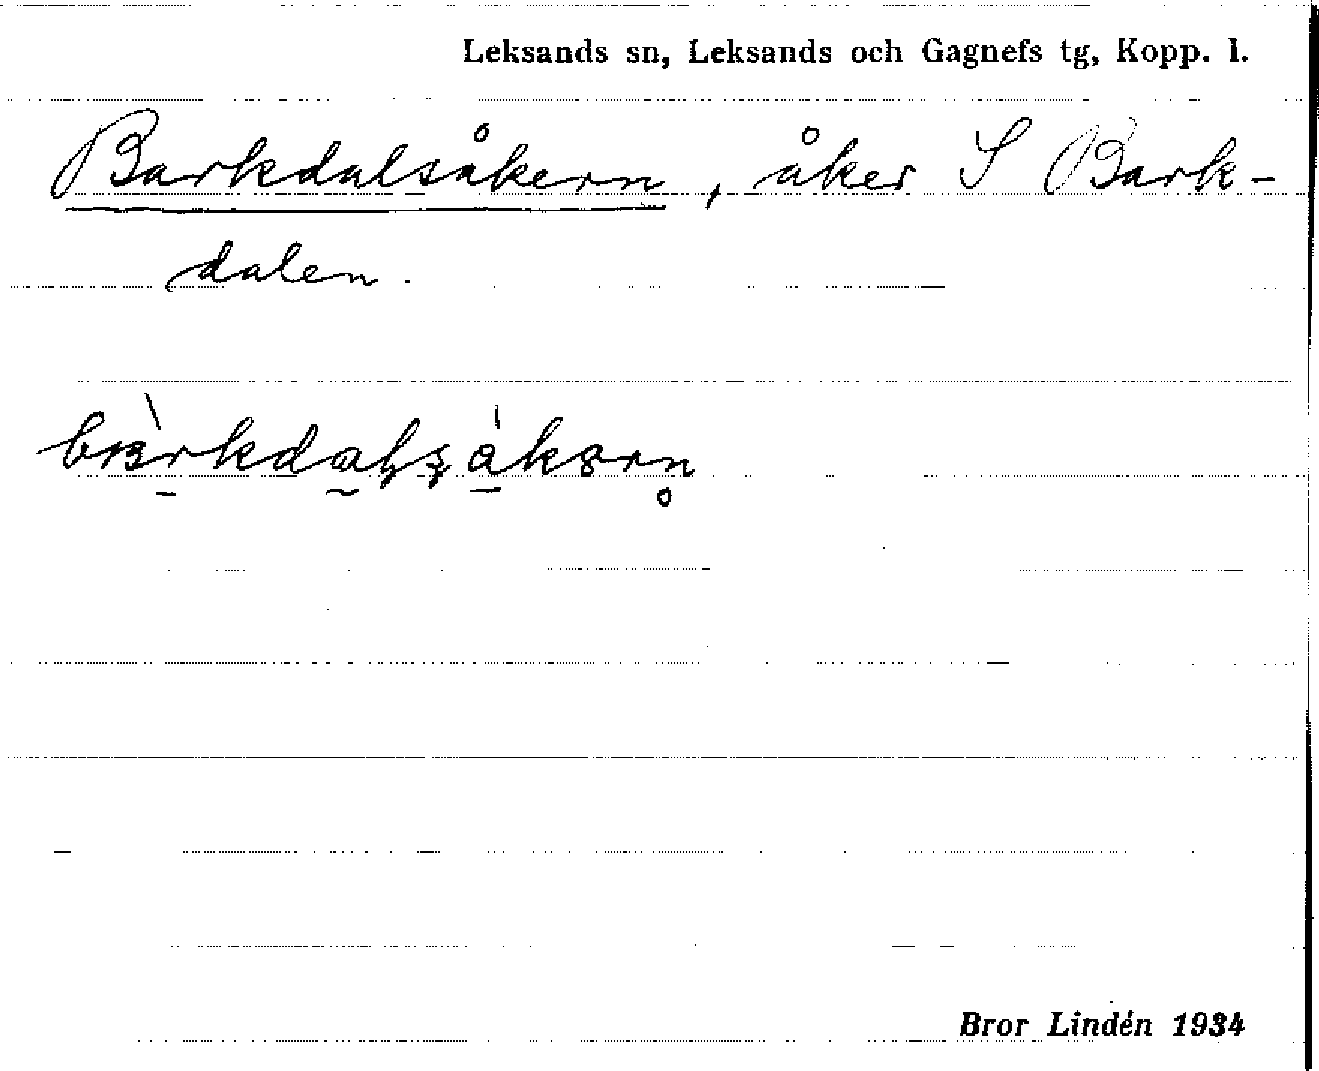 Leksands sn, Leksands och Gagnefs tg, Kopp. l.
Barkdalsåkern, åker S Bark-
dalen.
Bror Lindén 1934